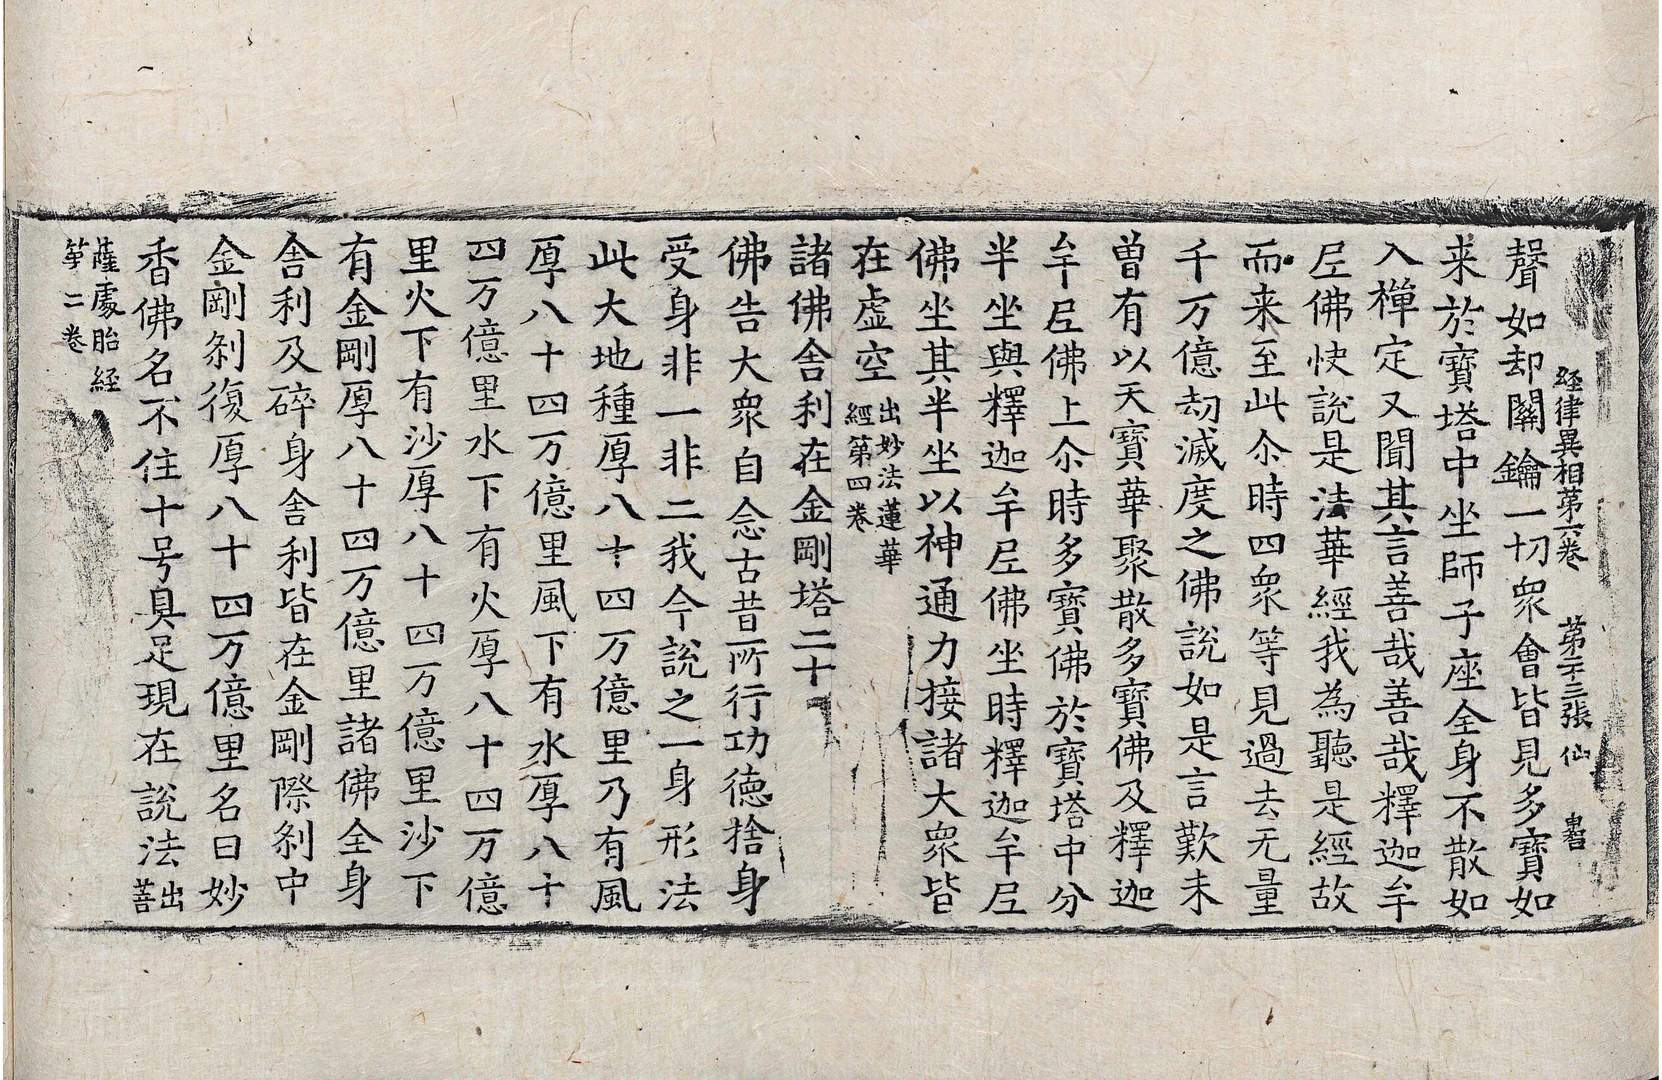 経律異相第六卷　第二十三張　仙
聲如却關鑰一切眾會皆見多寶如
来於寶塔中坐師子座全身不散如
入禪定又聞其言善哉善哉釋迦牟
𡰱佛快說是法華經我為聽是經故
而来至此尒時四眾等見過去无量
千万億劫滅度之佛說如是言歎未
曾有以天寶華聚散多寶佛及釋迦
牟𡰱佛上尒時多寶佛於寶塔中分
半坐與釋迦牟𡰱佛坐時釋迦牟𡰱
佛坐其半坐以神通力接諸大眾皆
在虛空出妙法蓮華經第四卷
諸佛舍利在金剛塔二十
佛告大眾自念古昔所行功德捨身
受身非一非二我今說之一身形法
此大地種厚八十四万億里乃有風
厚八十四万億里風下有水厚八十
四万億里水下有火厚八十四万億
里火下有沙厚八十四万億里沙下
有金剛厚八十四万億里諸佛全身
舍利及碎身舍利皆在金剛際刹中
金剛刹復厚八十四万億里名曰妙
香佛名不住十号具足現在說法出菩
薩處胎経
第二卷